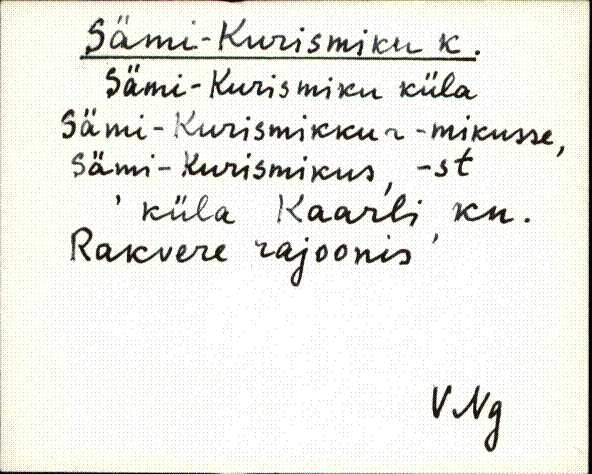 Sämi-Kurismiku k.
Sämi-Kurismiku küla
Sämi-Kurismikku ~ -mikusse,
Sämi-Kurismikus, -st
' küla Kaarli kn. '
Rakvere rajoonis
V. Ng